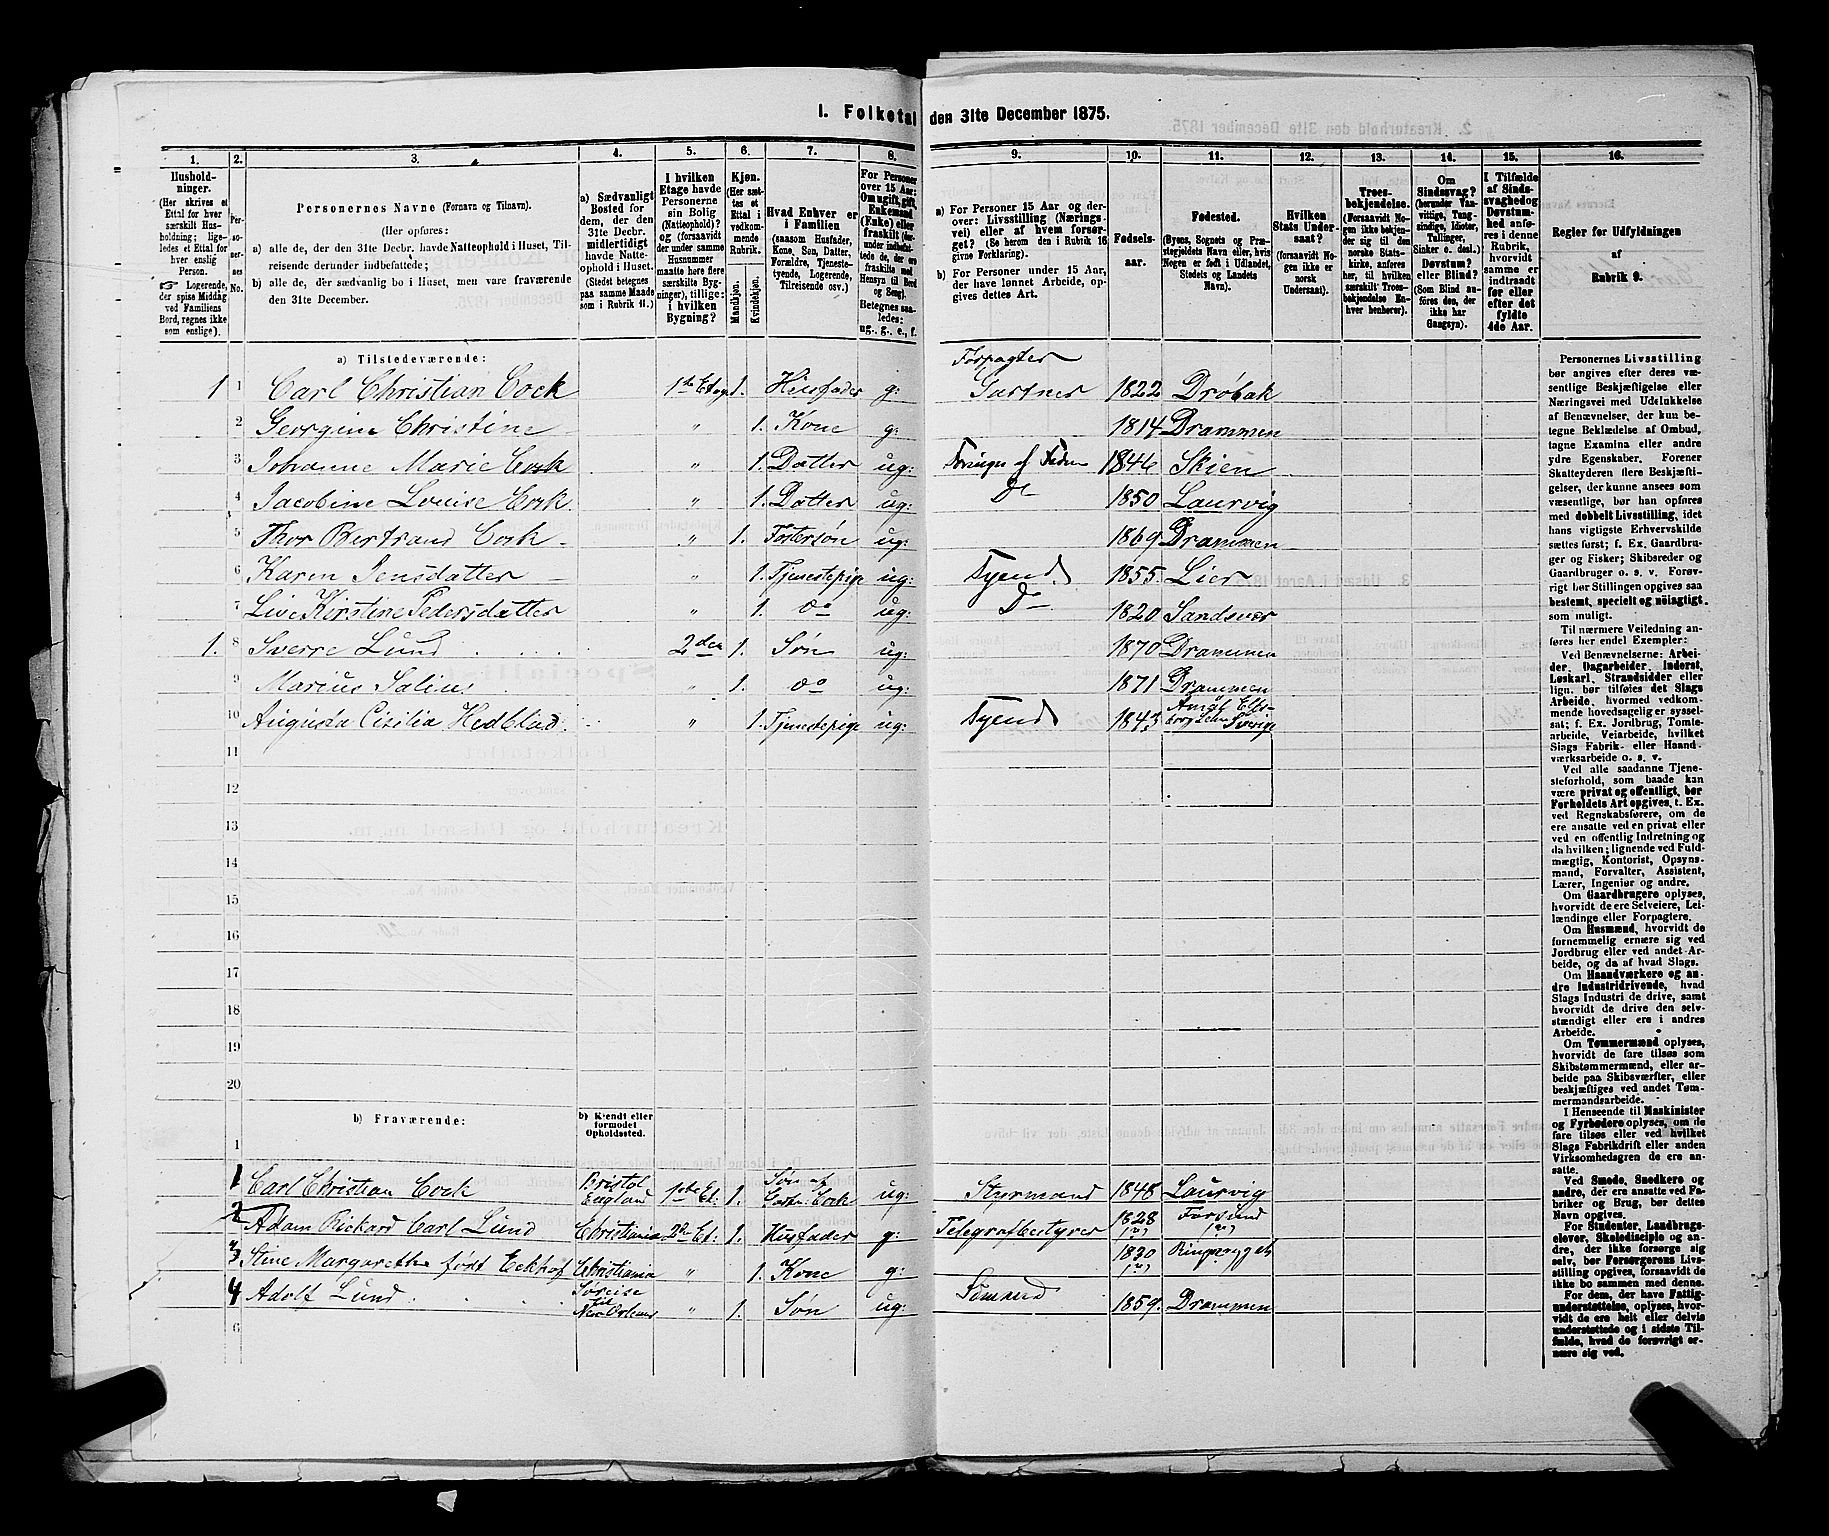 1. Folketal den 31te December 1875.
1. 2. 3. 4. 5. 6. 7. 8. 9. 10. 11. 12. 13. 14. 15. 16.
Hushold-
ninger.
(Her skrives et
Ettal for hver
særskilt Hus-
holdning; lige-
ledes et Ettal for
hver enslig
Person.
☞ Logerende,
der spise Middag
ved Familiens
Bord, regnes ikke
som enslige).
Per-
so-
ner-
nes
No.
Personernes Navne (Fornavn og Tilnavn).
(Her opføres:
a) alle de, der den 31te Decbr. havde Natteophold i Huset, Til-
reisende derunder indbefattede;
b) alle de, der sædvanlig bo i Huset, men vare fraværende
den 31te December.
a) Sædvanligt
Bosted for
dem, der den
31te Decbr.
midlertidigt
havde Natte-
ophold i Huset.
(Stedet betegnes
paa samme Maade
som i Rubrik 11.)
I hvilken
Etage havde
Personerne
sin Bolig
(Natteophold)?
og (forsaavidt
der under samme
Husnummer
maatte høre flere
særskilte Byg-
ninger), tillige:
i hvilken
Bygning?
Kjøn.
(Her sæt-
tes et
Ettal i
vedkom-
mende
Rubrik.
Mandkjøn.
Kvindekjøn.
Hvad Enhver er
i Familien
(saasom Husfader,
Kone, Søn, Datter,
Forældre, Tjeneste-
tyende, Logerende,
Tilreisende osv.)
For Personer
over 15 Aar:
Om ugift, gift,
Enkemand
(Enke) eller
fraskilt
Betegnes saa-
ledes:
ug., g., e., f.
a) For Personer 15 Aar og der-
over: Livsstilling (Nærings-
vei) eller af hvem forsør-
get? (Se herom den i Rubrik 16
givne Forklaring).
b) For Personer under 15 Aar,
der have lønnet Arbeide, op-
gives dettes Art.
Fødsels-
aar.
Fødested.
(Byens, Sognets og Præ-
stegjeldets Navn eller, hvis
Nogen er født i Udlandet,
Stedets og Landets
Navn).
Hvilken
Stats Under-
saat?
(forsaavidt No-
gen ikke er
norsk
Undersaat).
Troes-
bekjendelse.
(Forsaavidt No-
gen ikke bekjen-
der sig til den
norske Stats-
kirke, anføres
her, til hvilken
særskilt Troes-
bekjendelse En-
hver henhører).
Om
Sindssvag?
(herunder Van-
vittige, Tung-
sindige, Idioter,
Tullinger,
Sinker o. desl.)
Døvstum?
eller Blind?
(Som Blind an-
føres den, der
ikke har
Gangsyn).
I Tilfælde
af Sinds-
svaghed og
Døvstum-
hed anfø-
res i denne
Rubrik,
hvorvidt
samme er
indtraadt
før eller
efter det
fyldte
4de Aar.
Regler for Udfyldningen
af
Rubrik 9.
a) Tilstedeværende:
1 1 Carl Christian Cock 1ste Etage 1. Husfader g: Forpagter Gartner 1822 Drøbak
2 Georgine Christine „ 1. Kone g: 1814 Drammen
3 Johanne Marie Cock „ 1. Datter ug: 1846 Skien
4 Jacobine Louise Cock „ 1. Datter ug: Do 1850 Laurvig
5 Thor Bertrand Cock „ 1. Fostersøn ug: 1869 Drammen
6 Karen Jensdatter „ 1. Tjenestepige ug: Tyende 1855. Lier
7 Live Kirstine Pedersdatter „ 1. do ug: Do 1820 Sandsvær
1. 8 Sverre Lund 2den 1. Søn ug: 1870 Drammen
9 Marius Salius „ 1. do ug: 1871 Drammen
10 Augusta Cisilia Hedblad „ 1. Tjenestepige ug: Tyende 1843 Sverige
11
12
13
14
15
16
17
18
19
20
b) Fraværende:
b) Kjendt eller
formodet
Opholdssted.
1
1 Carl Christian Cock Bristol England 1ste Et: 1. Søn af Gartn: Cock ug: Styrmand 1848 Laurvig
2 Adam Rickard Carl Lund Christiania 2den Et: 1. Husfader g: Telegrafbestyrer 1828 (?) Farsund (?)
3 Stine Margarethe født Eckhof Christiania „ 1. Kone g: 1830 (?)
4 Adolf Lund Søreise til New Orleans „ 1. Søn ug: Sømand 1859. Drammen
6
Personernes Livsstilling
bør angives efter deres væ-
sentlige Beskjæftigelse eller
Næringsvei med Udelukkelse
af Benævnelser, der kun be-
tegne Beklædelse af Ombud,
tagne Examina eller andre
ydre Egenskaber. Forener
Skatteyderen flere Beskjæfti-
gelser, der kunne ansees som
væsentlige, bør han opføres
med dobbelt Livsstilling, idet
hans vigtigste Erhvervskilde
sættes først; f. Ex. Gaardbru-
ger og Fisker; Skibsreder og
Gaardbruger o. s. v. Forøv-
rigt bør Stillingen opgives saa
bestemt, specielt og nøiagtigt
som muligt.
Til nærmere Veiledning an-
føres her endel Exempler:
Ved Benævnelserne: Arbei-
der, Dagarbeider, Inderst,
Løskarl, Strandsidder eller
lign. bør tilføies det Slags
Arbeide, hvormed vedkom-
mende hovedsagelig er syssel-
sat; f. Ex. Jordbrug, Tomte-
arbeide, Veiarbeide, hvilket
Slags Fabrik- eller Haand-
værksarbeide o. s. v.
Ved alle saadanne Tjene-
steforhold, som baade kan
være privat og offentligt, bør
Forholdets Art opgives, t. Ex.
ved Regnskabsførere, om de
ere ansatte ved en privat eller
ved en offentlig Indretning og
da hvilken; lignende ved Fuld-
mægtig, Kontorist, Opsyns-
mand, Forvalter, Assistent,
Lærer, Ingeniør og andre.
Om Gaardbrugere oplyses,
hvorvidt de ere Selveiere, Lei-
lændinge eller Forpagtere.
Om Husmænd, hvorvidt de
fornemmelig ernære sig ved
Jordbrug eller ved andet Ar-
beide, og da af hvad Slags.
Om Haandværkere og an-
dre Industridrivende, hvad
Slags Industri de drive, samt
hvorvidt de drive den selv-
stændigt eller ere i andres
Arbeide.
Om Tømmermænd oplyses,
hvorvidt de fare tilsøs som
Skibstømmermænd, eller ar-
beide paa Skibsværfter, eller
beskjæftiges ved andet Tøm-
mermandsarbeide.
I Henseende til Maskinister
og Fyrbødere oplyses, om de
fare tilsøs eller ved hvilket
Slags Fabrikdrift eller anden
Virksomhedsgren de ere an-
satte.
Ved Smede, Snedkere og
andre, der ere ansatte ved Fa-
briker og Brug, bør dettes
Navn opgives.
For Studenter, Landbrugs-
elever, Skoledisciple og an-
dre, der ikke forsørge sig
selv, bør Forsørgerens Livs-
stilling opgives, forsaavidt de
ikke bo sammen med denne.
For dem, der have Fattig-
understøttelse, oplyses, hvor-
vidt de ere helt eller delvis
understøttede og i sidste Til-
fælde, hvad de forøvrigt er-
nære sig ved.